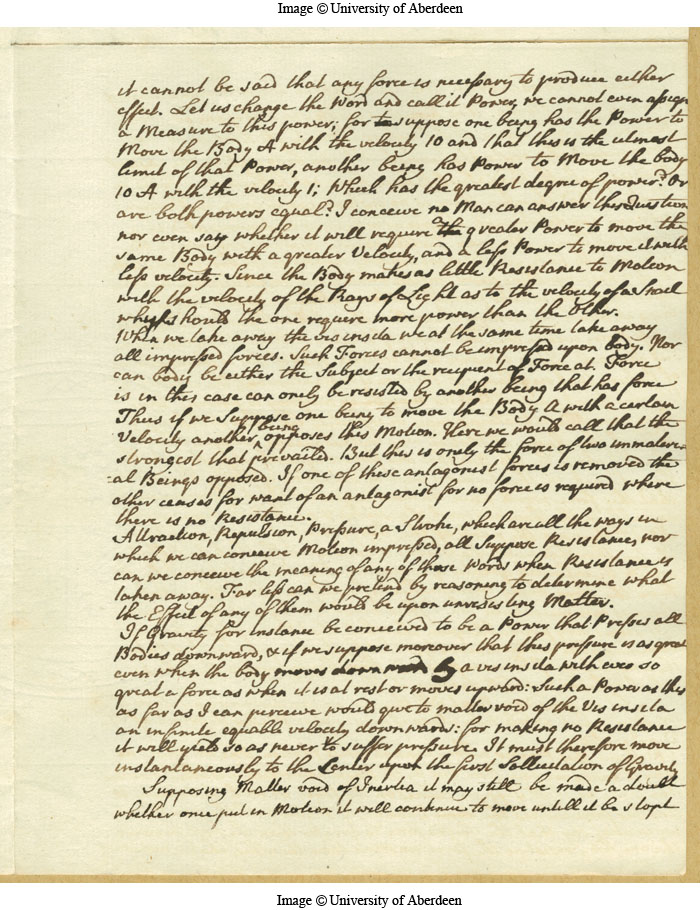 Image © University of Aberdeen
it cannot be said that any force is necessary to produce either
effect. Let us change the Word and call it Power, we cannot even assign
a Measure to this power; for to suppose one being has the Power to
Move the Body A with the velocity 10 and that this is the utmost
limit of that Power, another being has Power to Move the body
10 A with the velocity 1; Which has the greatest degree of power? Or
are both powers equal? I conceive no Man can answer this Question
nor even say whether it will require a greater Power to move the
same Body with a greater Velocity, and a less Power to move it with
less velocity. Since the Body makes as little Resistance to Motion
with the velocity of the Rays of Light as to the velocity of a Snail
why should the one require more power than the Other.
When we take away the vis insita we at the same time take away
all impressed forces. Such Forces cannot be impressed upon body. Nor
can body be either the Subject or the recipient of Force at. Force
is in this case can only be resisted by another being that has force
Thus if we Suppose one being to move the Body A with a certain
Velocity another being opposes this Motion. Here we would call that the
strongest that prevailed. But this is only the force of two immateri-
-al Beings opposed. If one of these antagonist forces is removed the
other ceases for want of an antagonist for no force is required where
there is no Resistance.
Attraction, Repulsion, Pressure, a Stroke, which are all the ways in
which we can conceive Motion impressed, all Suppose Resistance, nor
can we conceive the meaning of any of those words when Resistance is
taken away. Far less can we pretend by reasoning to determine what
the Effect of any of them would be upon unresisting Matter.
If Gravity for instance be conceived to be a Power that Presses all
Bodies downward, & if we suppose moreover that this pressure is as great
even when the body moves downward a vis insita with ever so
great a force as when it is at rest or moves upward: Such a Power as this
as far as I can perceive would give to matter void of the Vis insita
an infinite equable velocity downwards: for making no Resistance
it will yield so as never to suffer pressure. It must therefore move
instantaneously to the Center upon the first Sollicitation of Gravity
Supposing Matter void of Inertia it may still be made a doubt
whether once put in Motion it will continue to move untill it be stopt
Image © University of Aberdeen